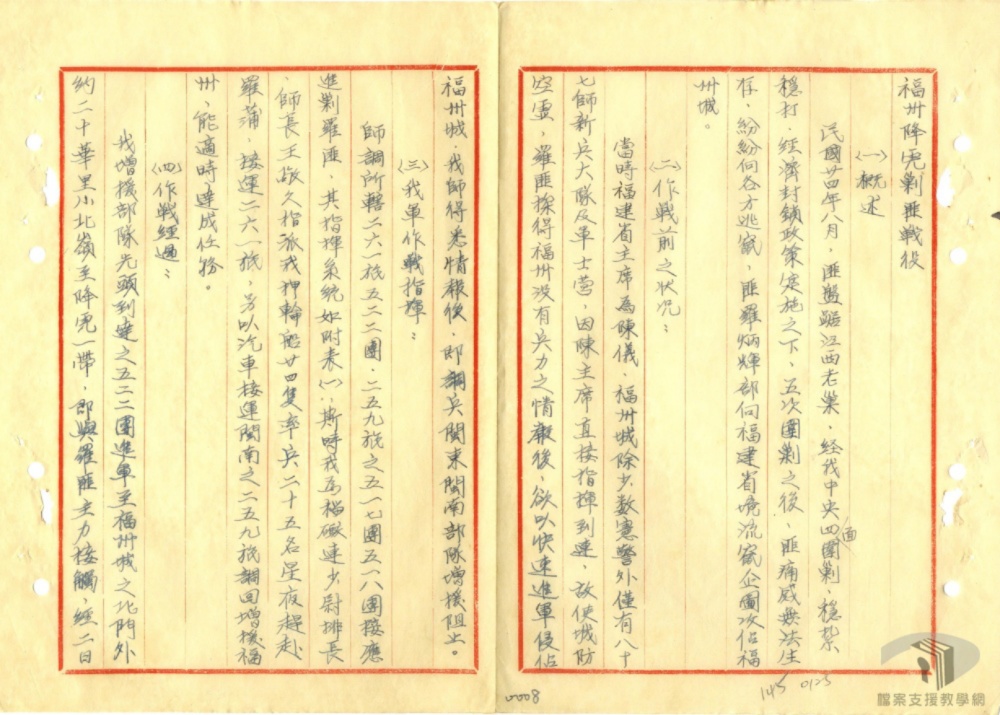 福州降虎剿匪戰役
(一)概述
民國廿四年八月，匪盤踞江西老巢，經我中央四面圍剿，穩紮
穩打，經濟封鎖政策实施之下，五次圍剿之後，匪痛感無法生
存，紛紛向各方逃竄，匪羅炳輝部向福建省境流竄企圖攻佔福
州城。
(二)作戰前之狀況：
當時福建省主席為陳儀，福州城除少数憲警外僅有八十
七師新兵大隊及軍士营，因陳主席直接指揮到連，故使城防
空虛，羅匪探得福州没有兵力之情報後，欲以快速進軍侵佔
福州城，我師得悉情報後，即調兵閩東閩南部隊增援阻止。
(三)我軍作戰指揮：
師調所轄二六一旅五二二團，二五九旅之五一七團五一八團接應
進剿羅匪，其指揮系統如附表(一)，斯時我為
連少尉排長
，師長王敬久指派我押輪船廿四隻率兵二十五名星夜趕赴
羅蒲，接運二六一旅，另以汽車接運閩南之二五九旅調回增援福
州，能適時達成任務。
(四)作戰經過：
我增援部隊先頭到達之五二二團進軍至福州城之北門外
約二十華里小北嶺至降虎一帶，即與羅匪主力接觸，經二日
0008
145
0125
檔案支援教學網